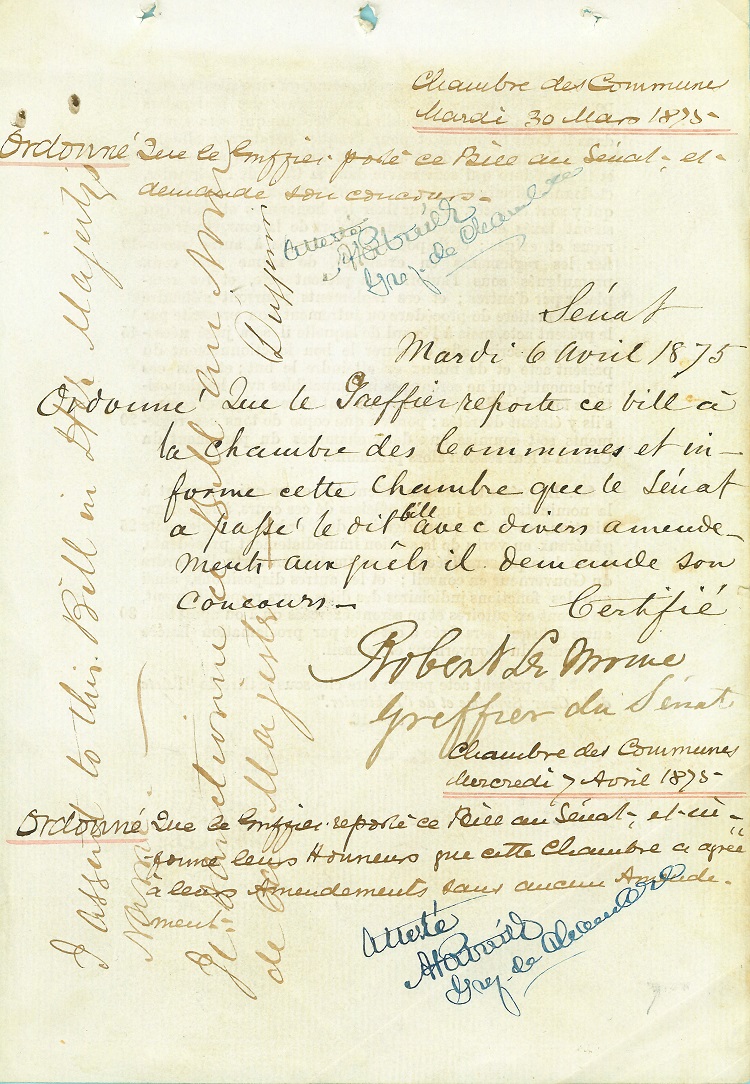 Chambre des Communes
Mardi 30 Mars 1875
Ordonné Que le Greffier porte ce Bill au Sénat, et
demande son concours.
Attesté
Gref. de Chambre
Sénat
Mardi 6 Avril 1875
Ordonné Que le Greffier reporte ce bill à
la Chambre des Communes et in-
forme cette Chambre que le Sénat
a passé le dit bill avec divers amende-
ments auxquels il demande son
concours.
Certifié
Robert Le Moine
Greffier du Sénat
Chambre des Communes
Mercredi 7 Avril 1875
Ordonné Que le Greffier reporte ce Bill au Sénat, et in-
forme leurs Honneurs que cette Chambre a agréé
à leurs Amendements sans aucun Amende-
ment
Attesté
Gref. de Chambre
I assent to this Bill in Her Majesty's
Name.
Je sanctionne ce Bill au Nom
de Sa Majesté
Dufferin